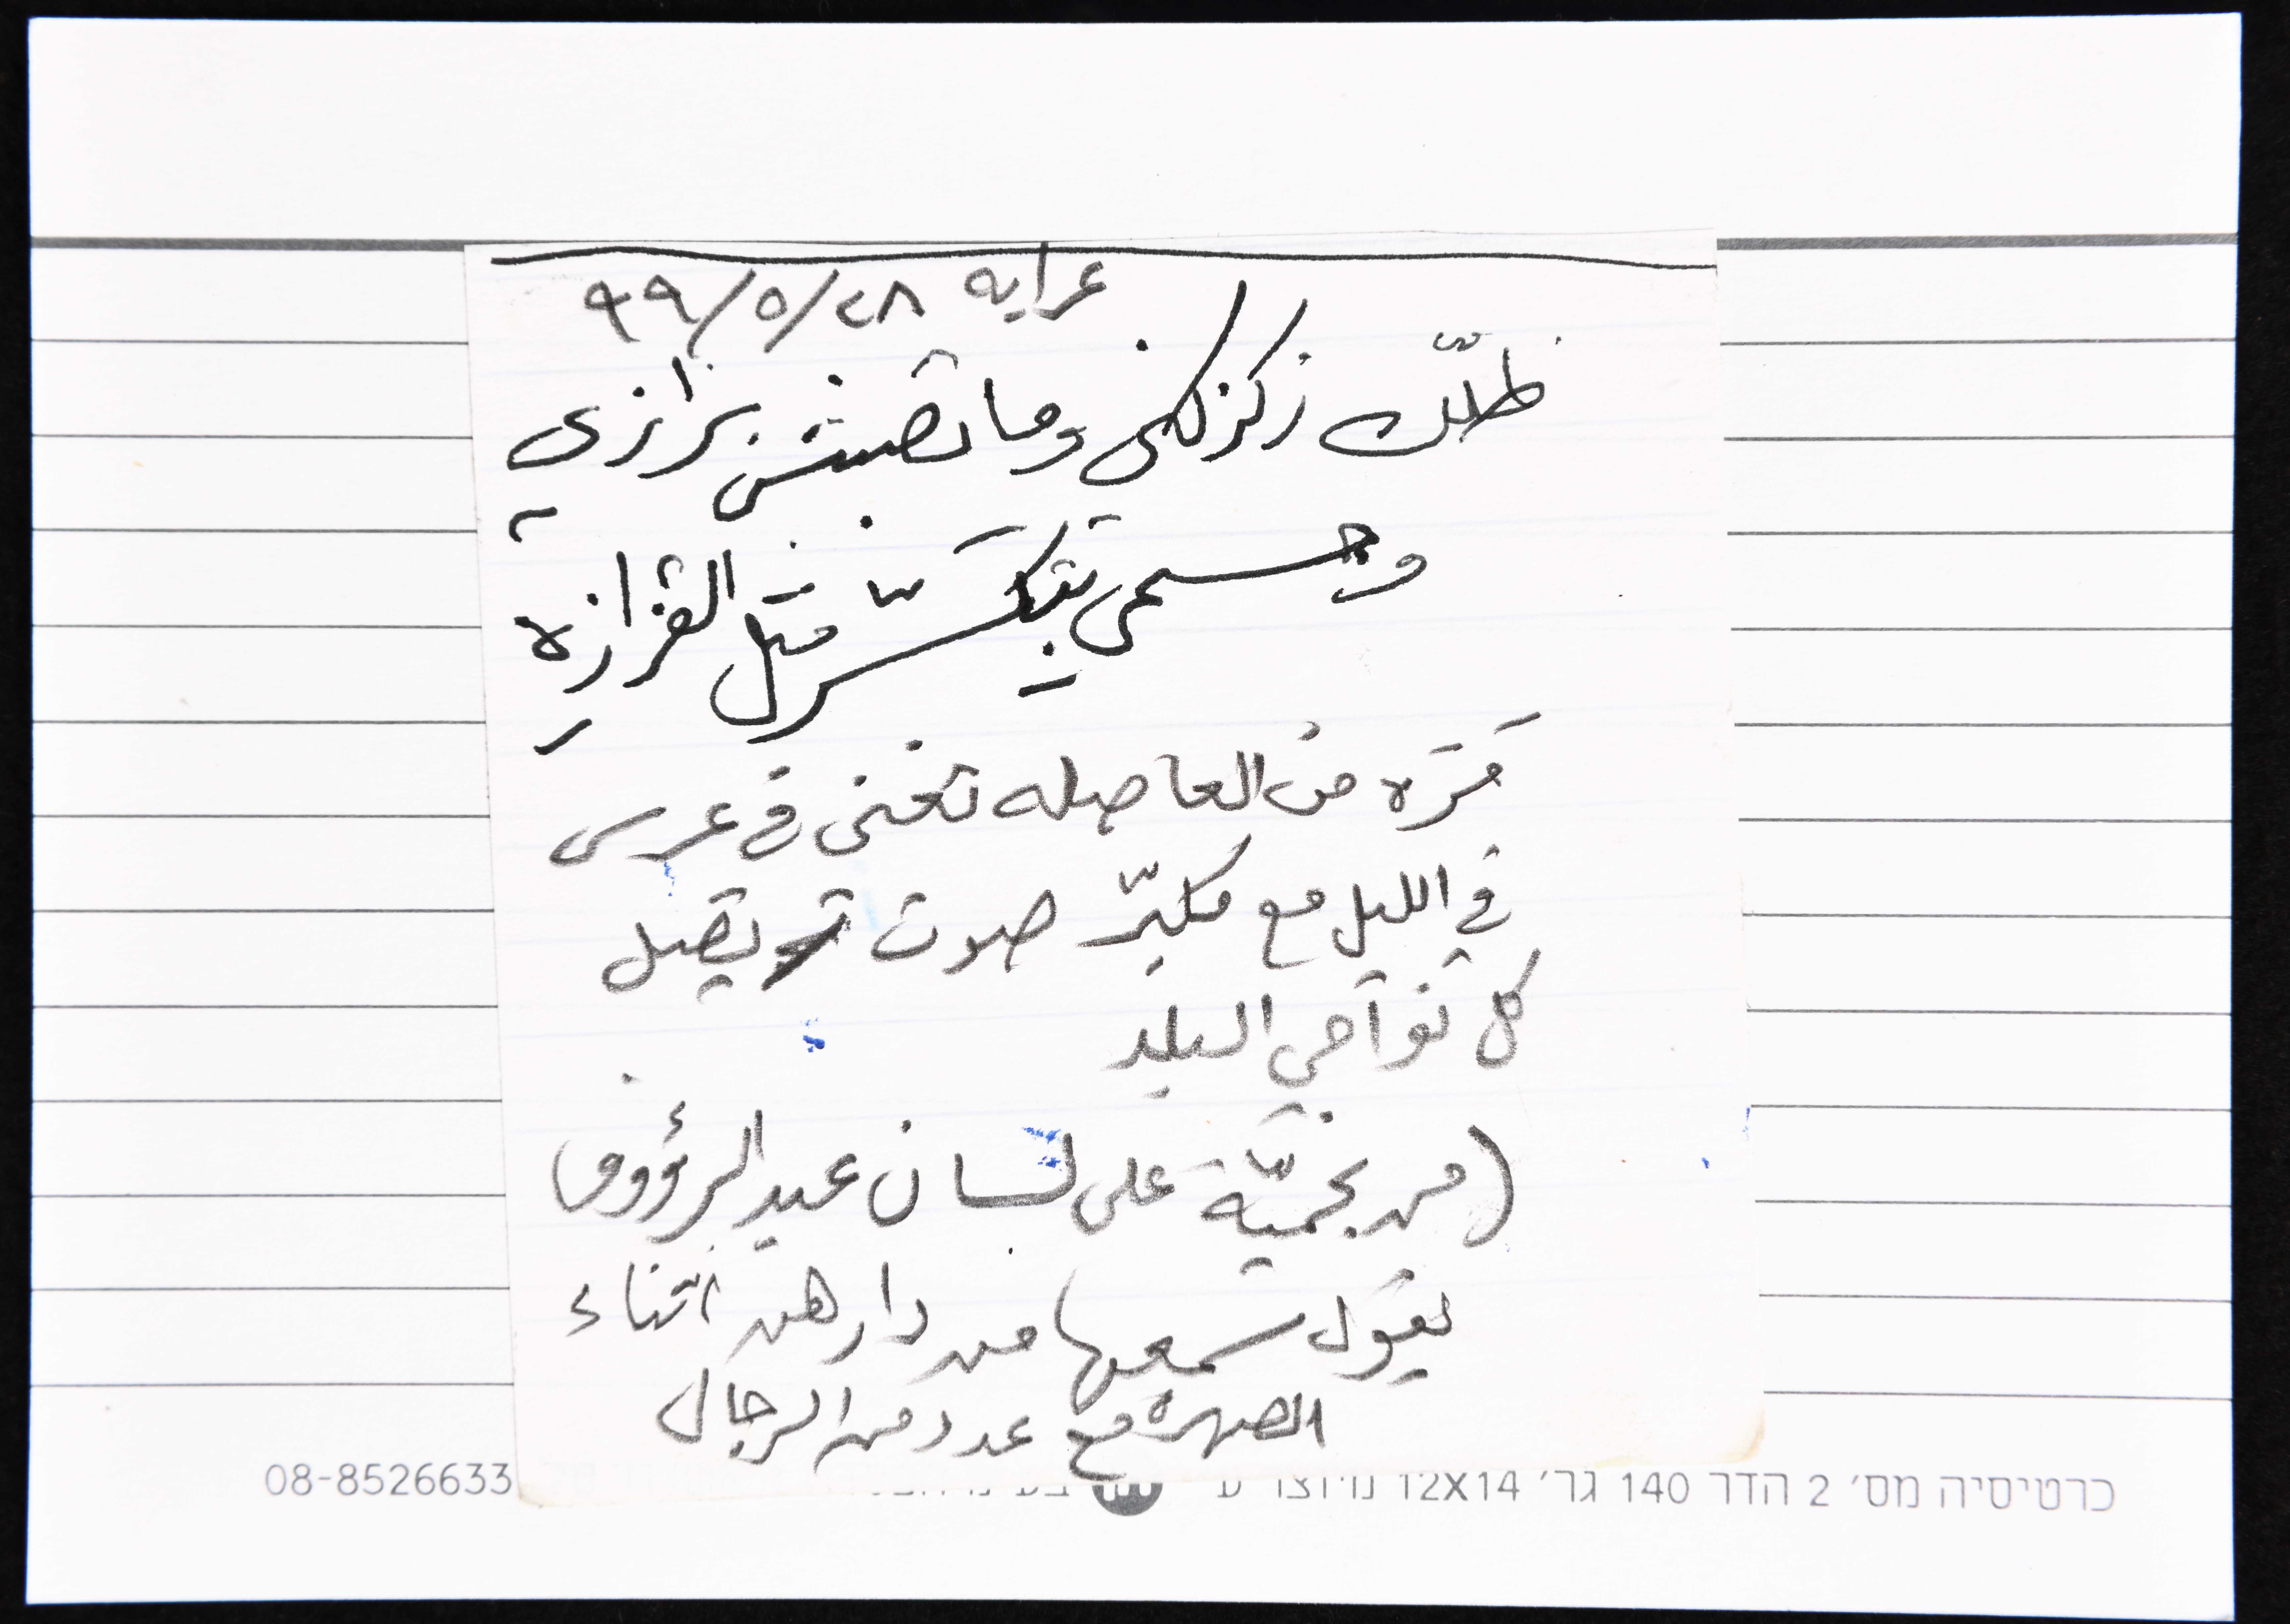 عرابه ٢٨/٥/٩٩
ظلّك زكزكني وما تصبش بزازي
وجسمي بتكسّر مثل القزازه
مَرَه من العاصله تغني في عرس
في الليل مع مكبّر صوت يصل
كل نواحي البلد
(من نجميّة على لسان عبد الرؤوف)
يقول سمعها من دارهن اثناء
الصهرة مع عدد من الرجال
כרטיסיה מס׳ 2 הדר 140 גר׳ 12X14
08-8526633